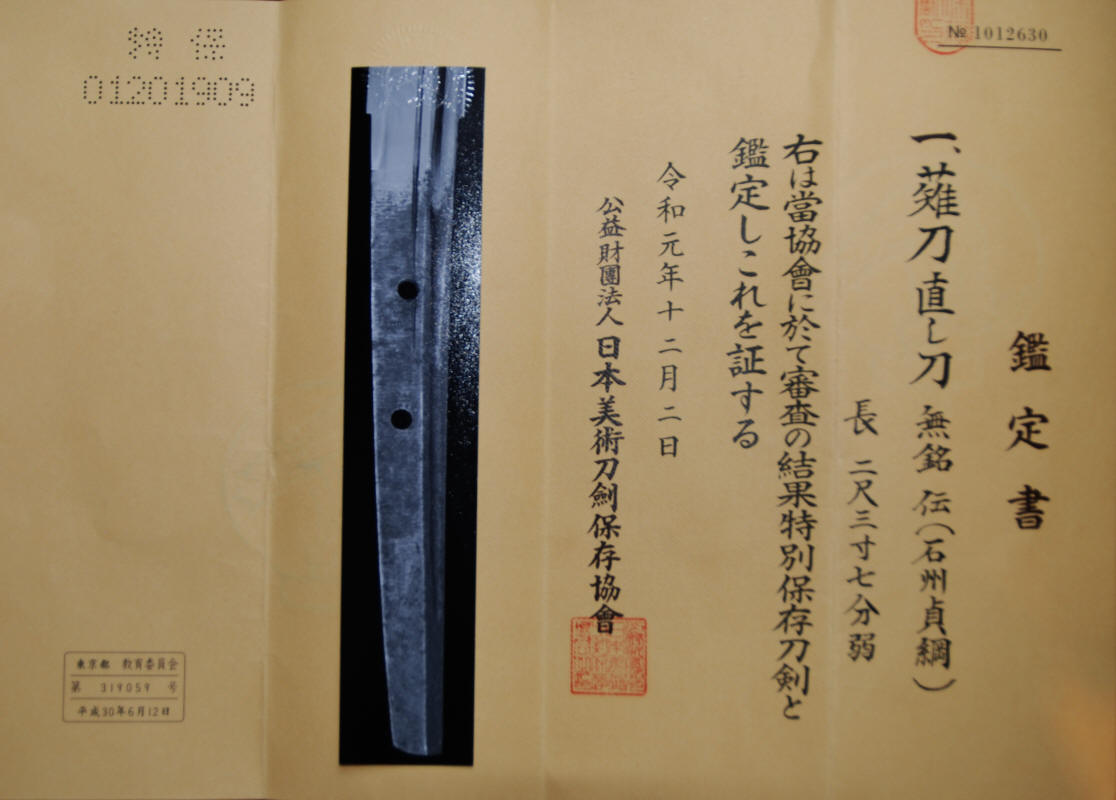 № 1012630
鑑定書
一、薙刀直し刀 無銘 伝(石州貞綱)
長 二尺三寸七分弱
右は當協會に於て審査の結果特別保存刀剣と
鑑定しこれを証する
令和元年十二月二日
公益財團法人 日本美術刀劍保存協會
特保
01201909
東京都 教育委員会
第 319059 号
平成30年6月12日